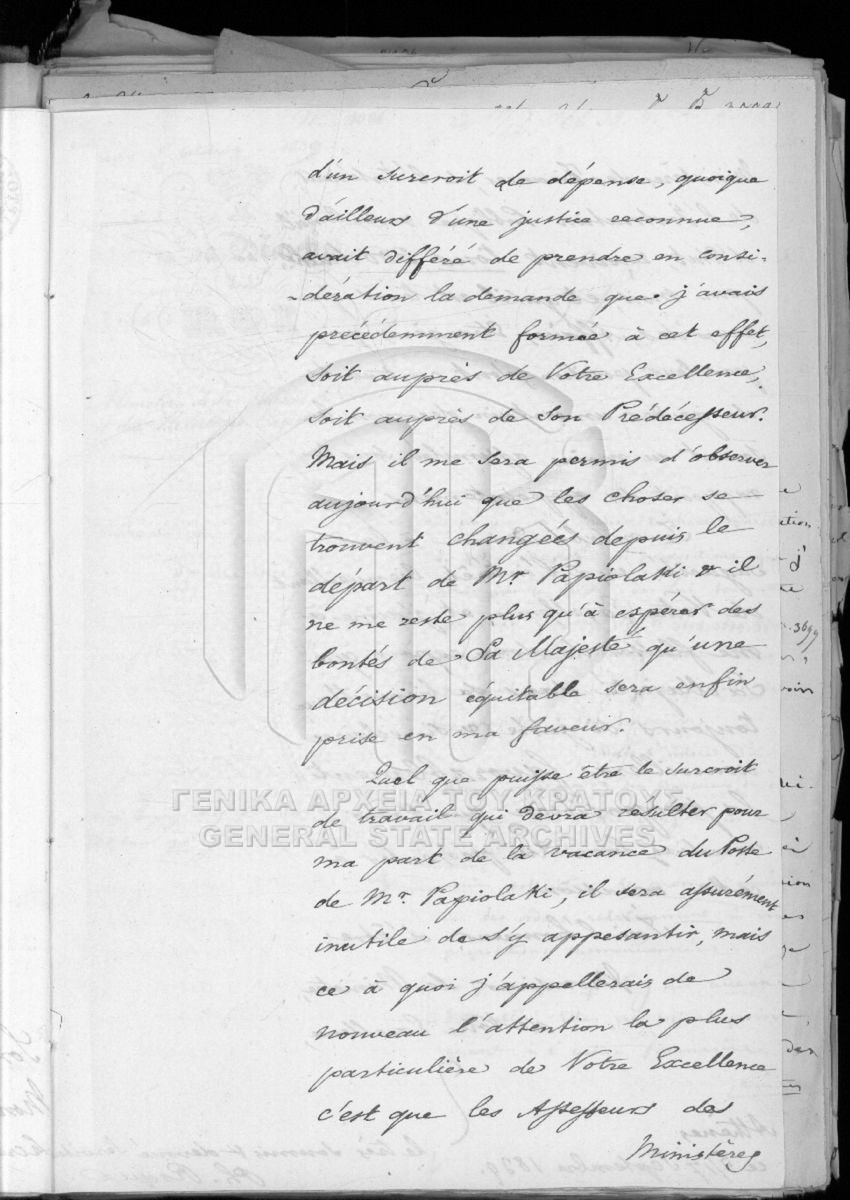 d'un surcroit de dépense, quoique
d'ailleurs d'une justice reconnue,
avait différé de prendre en consi-
-dération la demande que j'avais
précédemment formée à cet effet,
soit auprès de Votre Excellence,
soit auprès de Son Prédécesseur.
Mais il me sera permis d'observer
aujourd'hui que les choses se
trouvent changées depuis le
départ de Mr Papiolaki & il
ne me reste plus qu'à espérer des
bontés de Sa Majesté qu'une
décision équitable sera enfin
prise en ma faveur.
Quel que puisse être le surcroit
de travail qui devra resulter pour
ma part de la vacance du Poste
de Mr. Papiolaki, il sera assurément
inutile de s'y appesantir, mais
ce à quoi j'appellerais de
nouveau l'attention la plus
particulière de Votre Excellence
c'est que les Assesseurs des
Ministères
ΓΕΝΙΚΑ ΑΡΧΕΙΑ ΤΟΥ ΚΡΑΤΟΥΣ
GENERAL STATE ARCHIVES